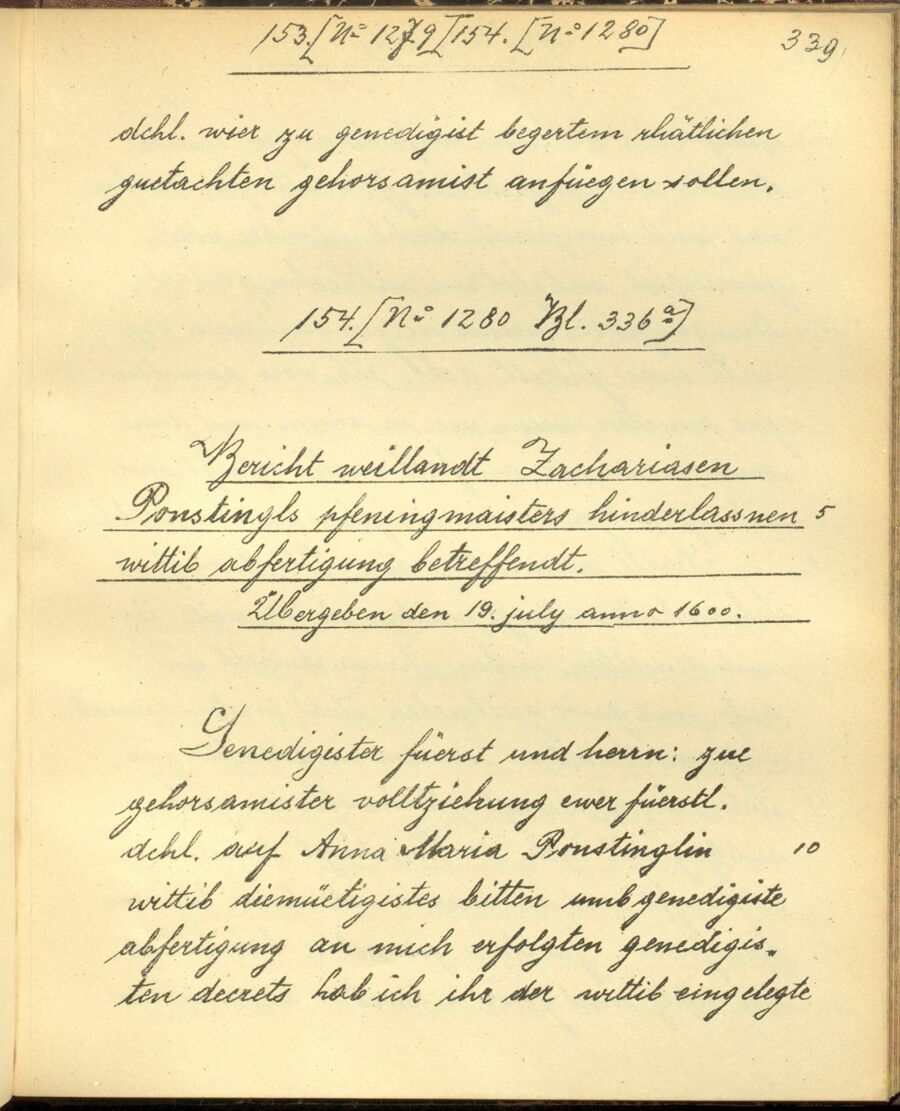 153.[Nº 1279][154.[Nº 1280]
339
dchl. wier zu genedigist begertem rhätlichen
guetachten gehorsamist anfüegen sollen.
154.[Nº 1280 Bl. 336ª]
Bericht weillandt Zachariasen
Ponstingls pfeningmaisters hinderlassnen 5
wittib abfertigung betreffendt.
Übergeben den 19. july anno 1600.
Genedigister füerst und herrn: zue
gehorsamister volltziehung ewer füerstl.
dchl. auf Anna Maria Ponstinglin 10
wittib diemüetigistes bitten umb genedigiste
abfertigung an mich erfolgten genedigis-
ten decrets hab ich ihr der wittib eingelegte